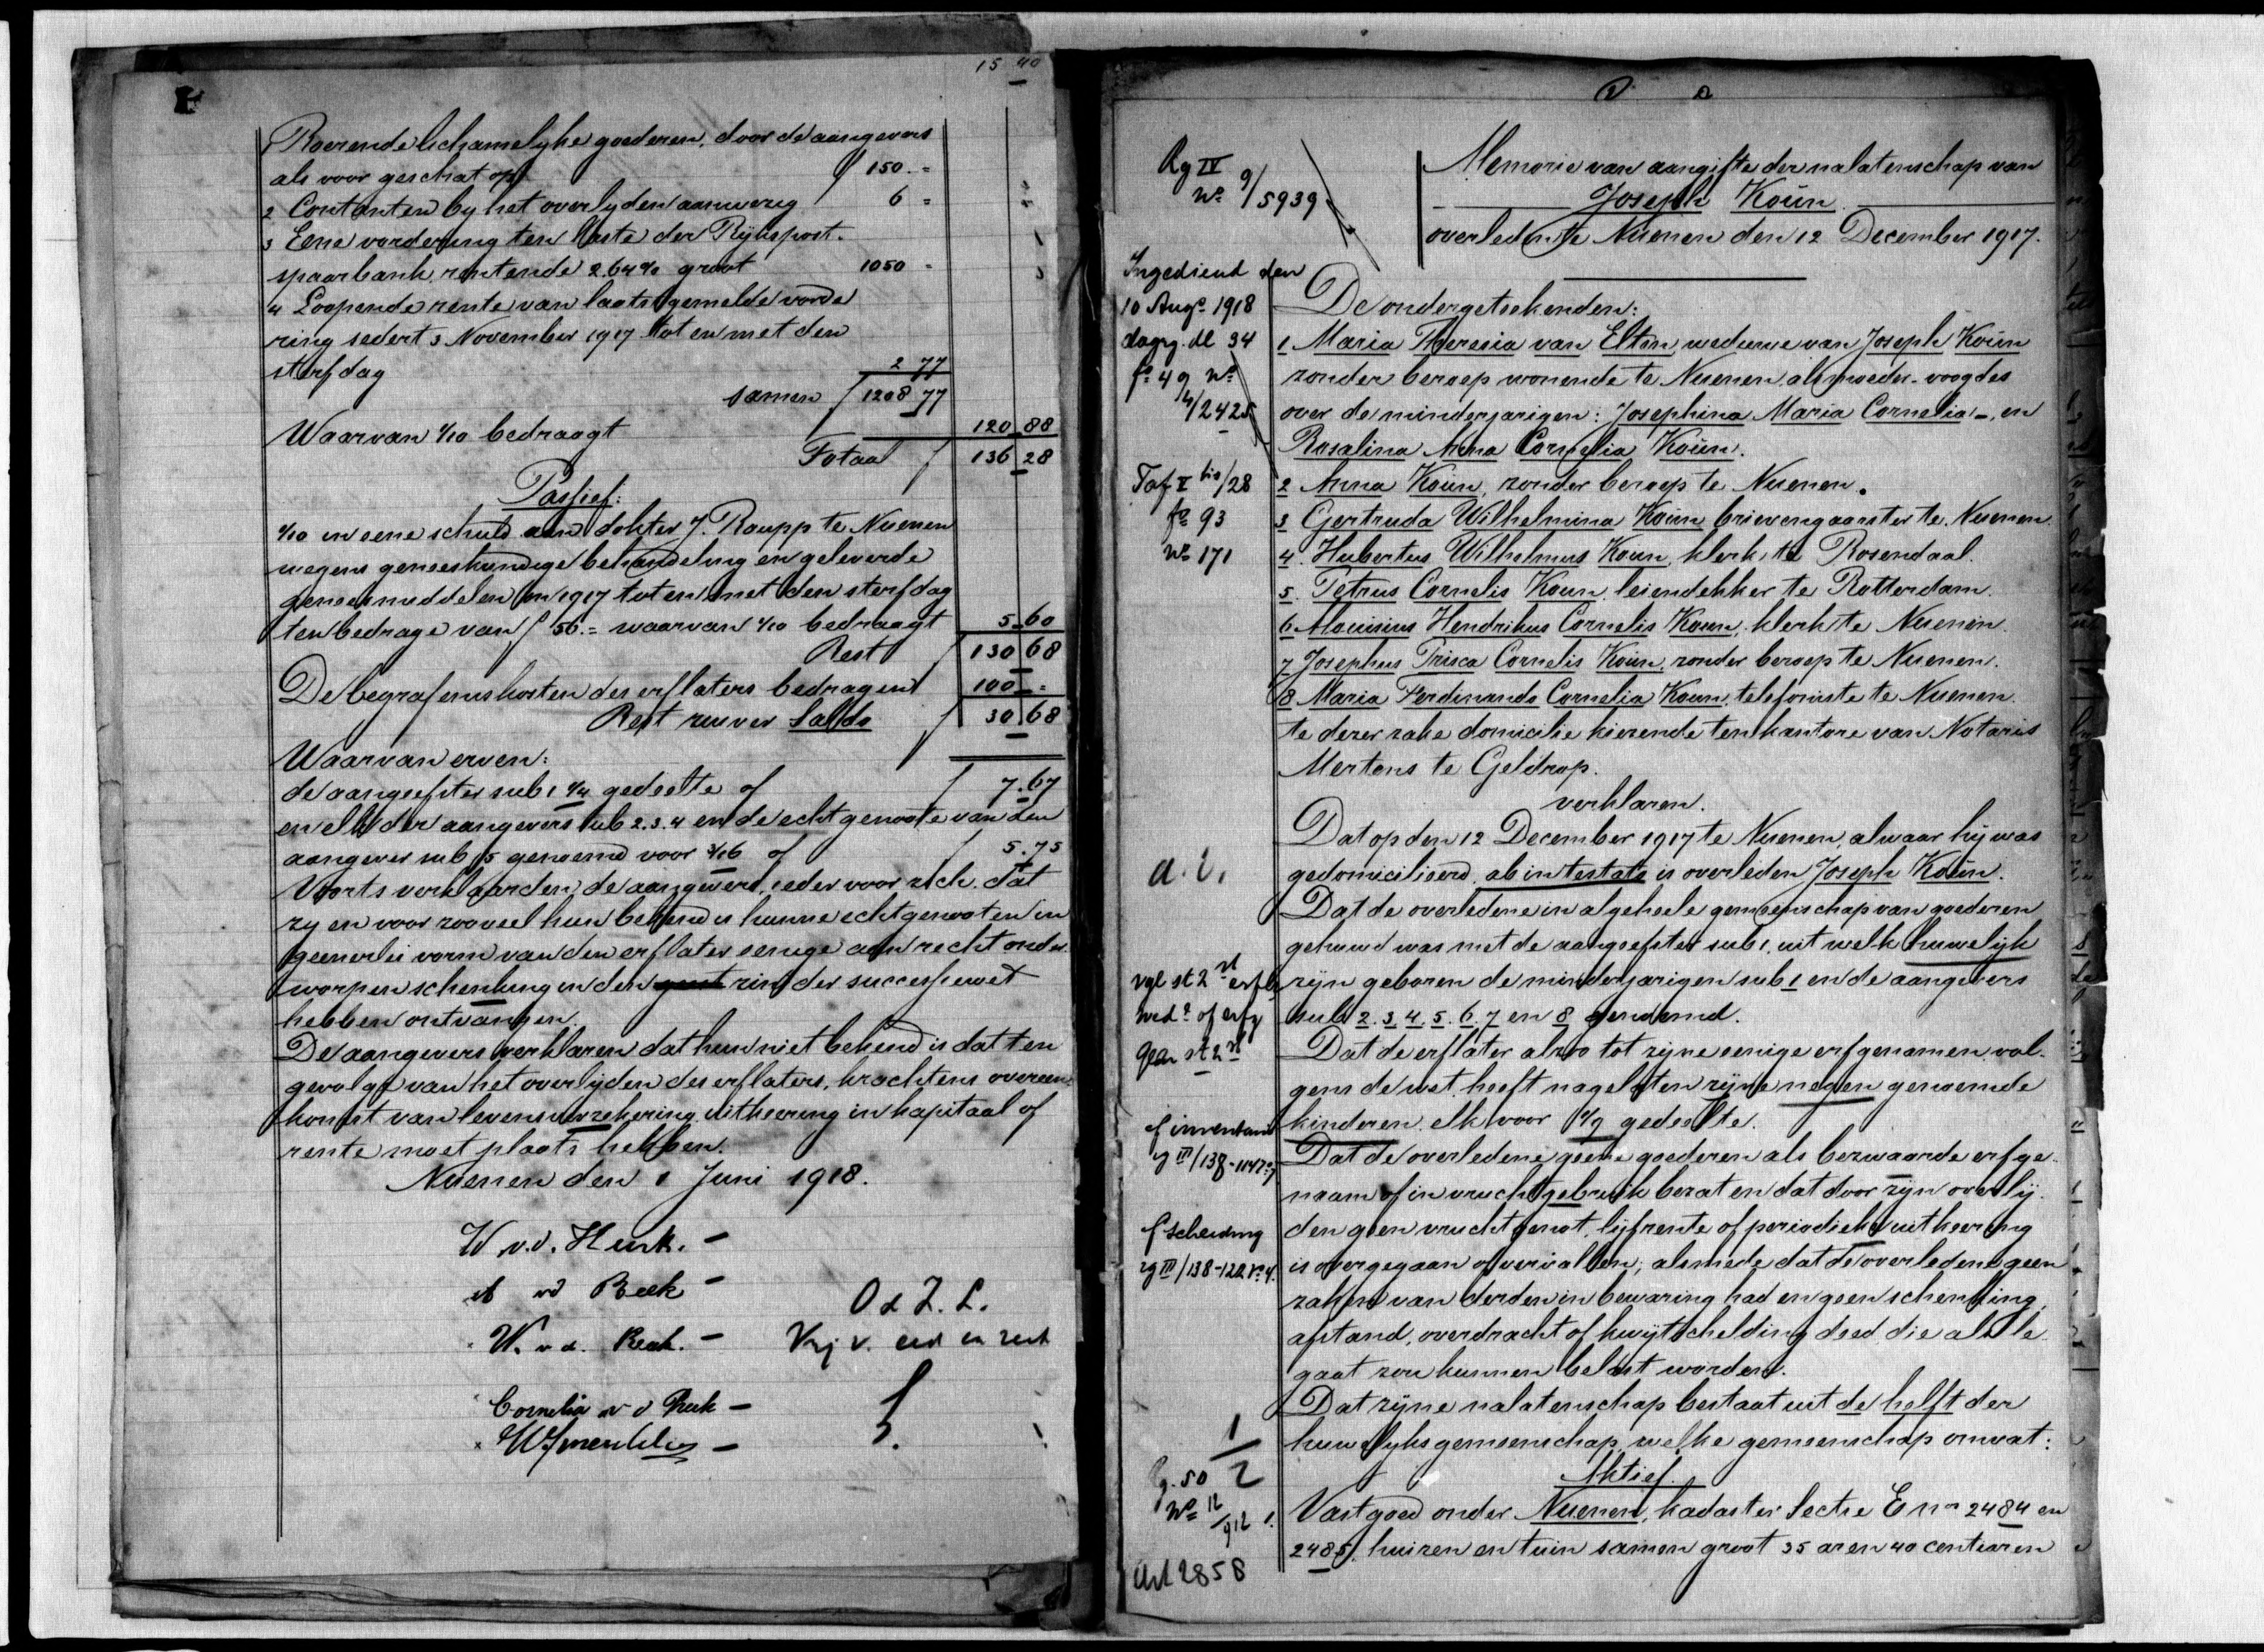 15 40
Roerende lichamelyke goederen, door de aangevers
als voor geschat op f 150.=
2 Contanten by het overlyden aanwezig 6 =
3 Eene vordering ten laste der Rijkspost-
spaarbank, rentende 2.64% groot 1050 -
4 Loopende rente van laatstgemelde vorde
ring sedert 3 November 1917 tot en met den
sterfdag 2 77
samen f 1208 77
Waarvan 1/10 bedraagt 120 88
Totaal f 136 28
Passief:
1/10 in eene schuld aan dokter J. Raupp te Nuenen
wegens geneeskundige behandeling en geleverde
geneesmiddelen in 1917 tot en met den sterfdag
ten bedrage van f 56.= waarvan 1/10 bedraagt 5.60
Rest f 130 68
De begrafeniskosten des erflaters bedragen 100 =
Rest zuiver Saldo f 30 68
Waarvan erven:
de aangeefster sub 1 1/4 gedeelte of f 7.67
en elk der aangevers sub 2.3.4 en de echtgenoote van den
aangever sub 5 genoemd voor 3/16 of f 5.75
Voorts verklaarden de aangevers, ieder voor zich, dat
zy en voor zooveel hun bekend is hunne echtgenooten in
geenerlei vorm van den erflater eenige aan recht onder-
worpen schenking in den zin der successiewet
hebben ontvangen.
De aangevers verklaren dat hun niet bekend is dat ten
gevolge van het overlijden des erflaters, krachtens overeen-
komst van levensverzekering uitkeering in kapitaal of
rente moet plaats hebben.
Nuenen den 1 Juni 1918.
W. v.d. Hurk. -
vd Beek -
O d Z. L.
W. v.d. Beek. -
Vrij v.
Cornelia v d Beek -
Rg IV
No 9/5939
Memorie van aangifte der nalatenschap van
Joseph Koün
overleden te Nuenen den 12 December 1917.
Ingediend den
10 Augs 1918
dagrg. dl 34
fo 49 No
4/2425
De ondergeteekenden:
1 Maria Theresia van Elten, weduwe van Joseph Koün
zonder beroep wonende te Nuenen, als moeder-voogdes
over de minderjarigen: Josephina Maria Cornelia -, en
Rosalina Anna Cornelia Koün.
Taf V bis/28
fo 93
No 171
2 Anna Koün, zonder beroep te Nuenen.
3 Gertruda Wilhelmina Koün brievengaarster te Nuenen.
4. Hubertus Wilhelmus Koun, klerk te Rosendaal.
5. Petrus Cornelis Koun, leiendekker te Rotterdam.
6. Alouisius Hendrikus Cornelis Koun, klerk te Nuenen.
7 Josephus Prisca Cornelis Koün, zonder beroep te Nuenen.
8 Maria Ferdinanda Cornelia Koun, telefoniste te Nuenen.
te dezer zake domicilie kiezende ten kantore van Notaris
Mertens te Geldrop.
verklaren.
Dat op den 12 December 1917 te Nuenen, alwaar hij was
a. i.
gedomicilieerd, ab intestato is overleden Joseph Koün.
Dat de overledene in algeheele gemeenschap van goederen
gehuwd was met de aangeefster sub 1, uit welk huwelijk
zijn geboren de minderjarigen sub 1 en de aangevers
sub 2.3.4.5.6.7 en 8 genoemd.
Dat de erflater alzoo tot zijne eenige erfgenamen vol-
gens de wet heeft nagelaten zijne negen genoemde
kinderen, elk voor 1/9 gedeelte.
Dat de overledene geene goederen als bezwaarde erfge-
naam of in vruchtgebruik bezat en dat door zijn overlij-
den geen vruchtgenot, lijfrente of periodieke uitkeering
is overgegaan of vervallen; alsmede dat de overledene geen
zaken van derden in bewaring had en geen schenking,
afstand, overdracht of kwijtschelding deed die als le
gaat zou kunnen belast worden.
Dat zijne nalatenschap bestaat uit de helft der
huwelyksgemeenschap, welke gemeenschap omvat:
1/2
Aktief.
No 12/912
1. Vastgoed onder Nuenen, kadaster Sectie E nos 2484 en
2485, huizen en tuin samen groot 35 aren 40 centiaren
Art 2858